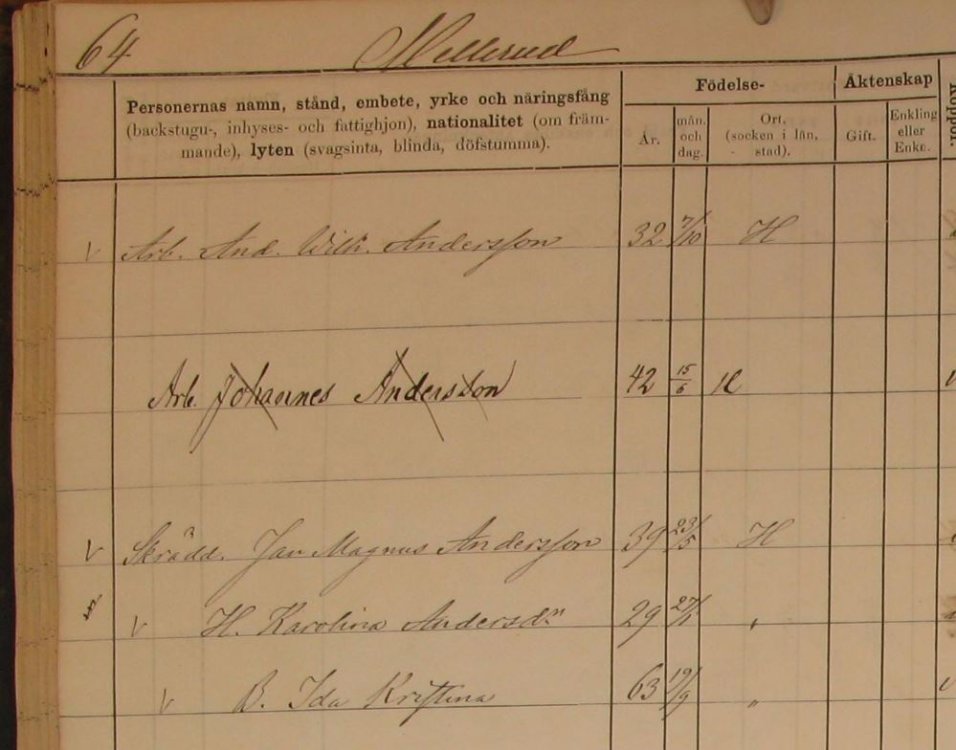 64 Mellerud
Personernas namn, stånd, embete, yrke och näringsfång
(backstugu-, inhyses- och fattighjon), nationalitet (om främ-
mande), lyten (svagsinta, blinda, döfstumma).
Födelse-
År.
mån. och dag.
Ort. (socken i län, stad).
Äktenskap
Gift.
Enkling eller Enke.
Koppor.
v Arb. And. Wilh. Andersson 32 7/10 H
Arb. Johannes Andersson 42 15/5
v Skrädd. Jan Magnus Andersson 39 23/5 H
v H. Karolina Andersdn 29 "
v B. Ida Kristina 63 19/9 "